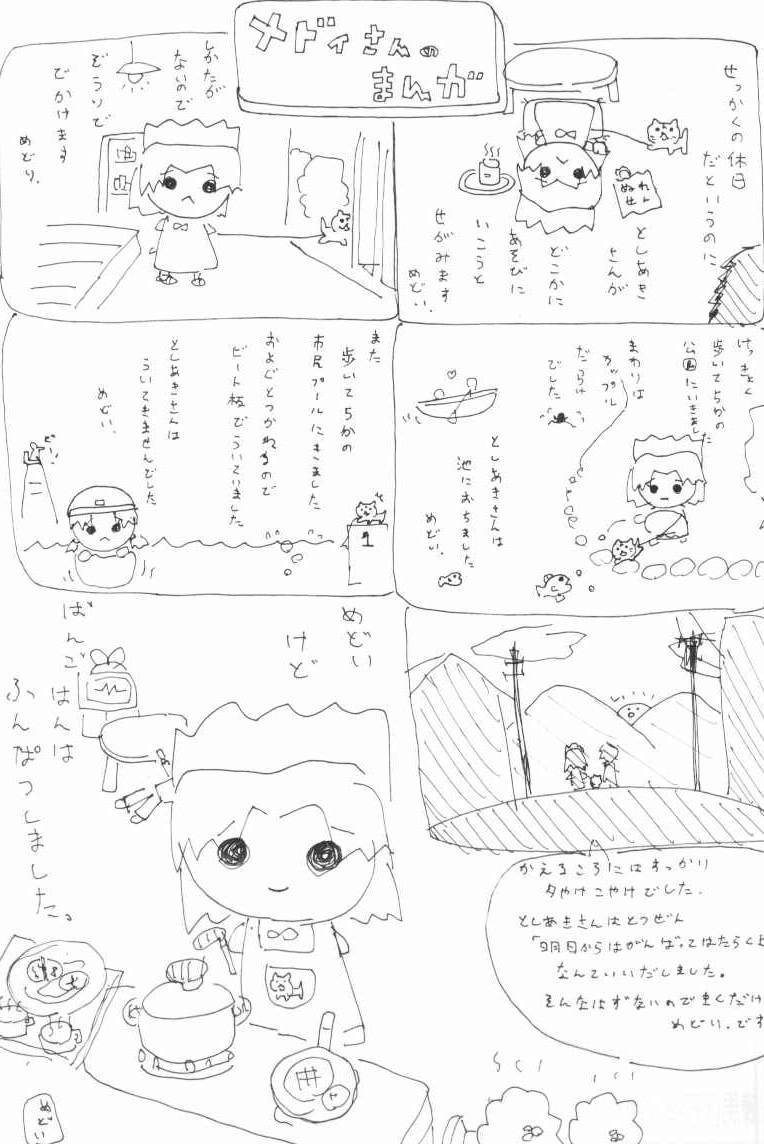 メドイさんの
まんが
せっかくの休日
だというのに
としあき
さんが
どこかに
あそびに
いこうと
せがみます
めどい.
しかたが
ないので
ぞうりで
でかけます
めどい.
けっきょく
歩いてちかの
公園にいきました
まわりは
カップル
だらけ
でした
としあきさんは
池におちました
めどい.
また
歩いてちかの
市民プールにきました
およぐとつかれるので
ビート板でういていました
としあきさんは
ういてきませんでした
めどい.
1
かえるころにはすっかり
夕やけこやけでした.
としあきさんはとつぜん
「明日からはがんばってはたらくよ
なんていいだしました。
そんなはずないのできくだけ
めどい.です
めどい
けど
ばんご
はんは
ふんぱつしました。
めどい